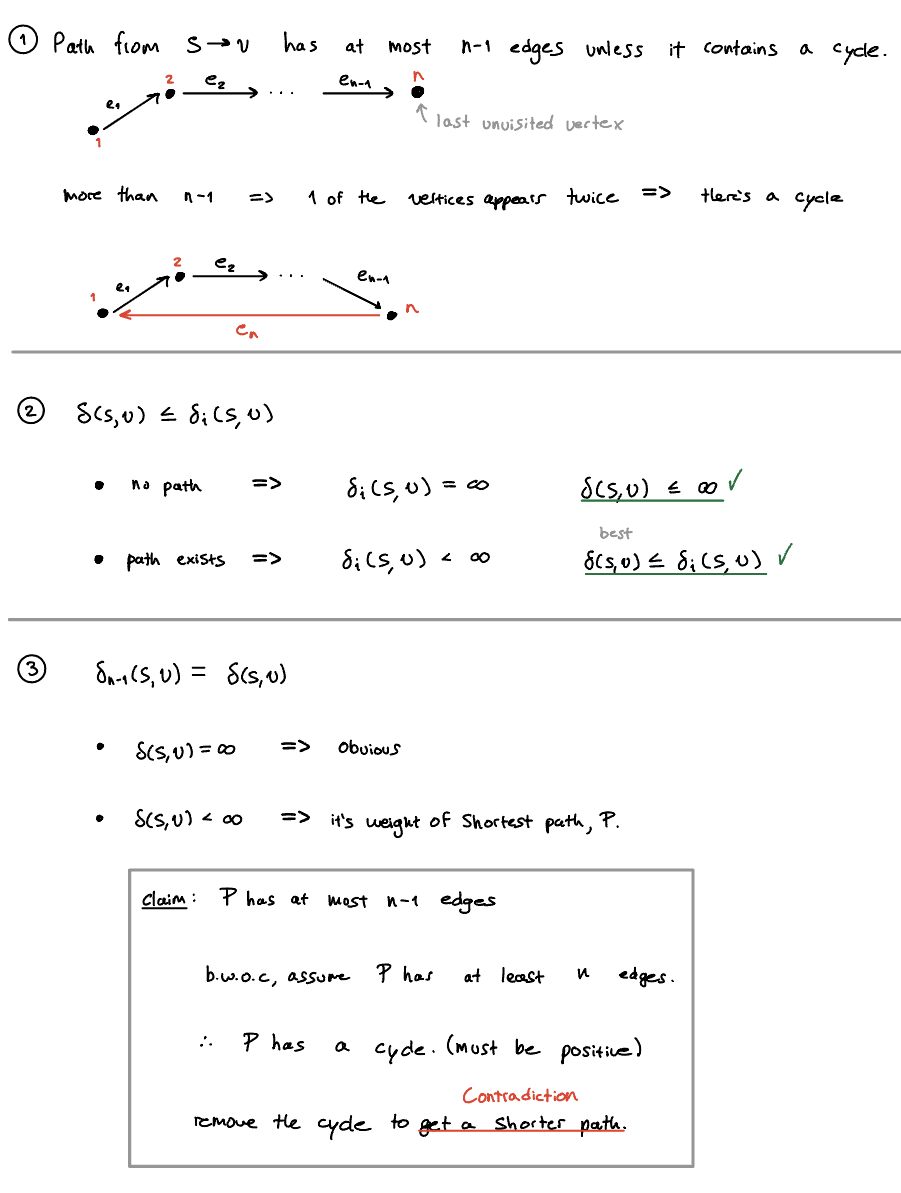 ① Path from s→v has at most n-1 edges unless it contains a cycle.
1 e₁ 2 e₂ ... eₙ₋₁ n
last unvisited vertex
more than n-1 => 1 of the vertices appears twice => there's a cycle
1 e₁ 2 e₂ ... eₙ₋₁ n
eₙ
② δ(s,v) ≤ δᵢ(s,v)
• no path => δᵢ(s,v) = ∞ δ(s,v) ≤ ∞ ✓
best
• path exists => δᵢ(s,v) < ∞ δ(s,v) ≤ δᵢ(s,v) ✓
③ δₙ₋₁(s,v) = δ(s,v)
• δ(s,v) = ∞ => obvious
• δ(s,v) < ∞ => it's weight of shortest path, P.
Claim: P has at most n-1 edges
b.w.o.c, assume P has at least n edges.
∴ P has a cycle. (must be positive)
Contradiction
remove the cycle to get a shorter path.